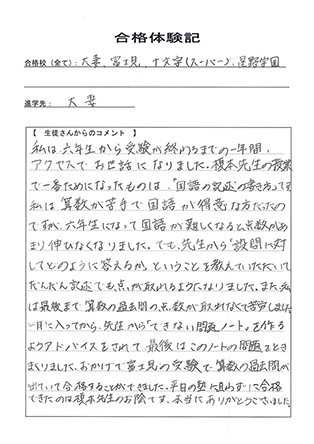 合格体験記
合格校（全て）: 大妻、富士見、十文字(スーパー)、星野学園
進学先： 大妻
【 生徒さんからのコメント 】
私は六年生から受験が終わるまでの一年間、
アクセスでお世話になりました。榎本先生の授業
で一番ためになったものは、「国語の記述の書き方」です。
私は算数が苦手で国語が得意な方だったの
ですが、六年生になって国語が難しくなると点数があ
まり伸びなくなりました。でも、先生から「設問に対
してどのように答えるか」ということを教えていただいて
だんだん記述でも点が取れるようになりました。また私
は最後まで算数の過去問の点数が取れなくて苦労しました。
一月に入ってから、先生から「できない問題ノート」を作る
ようアドバイスをされて最後はこのノートの問題をとき
まくりました。おかげで富士見の受験で算数の過去問が
出ていて合格することができました。平日の塾に通わずに合格
できたのは榎本先生のお陰です。本当にありがとうございました。